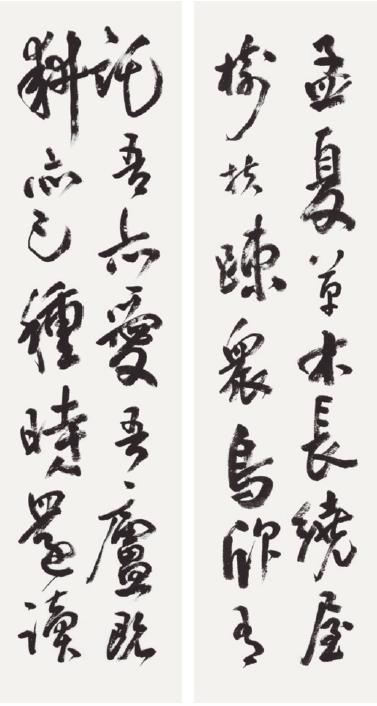 孟夏草木長繞屋
樹扶疎衆鳥欣有
託吾亦愛吾廬既
耕亦已種時還讀